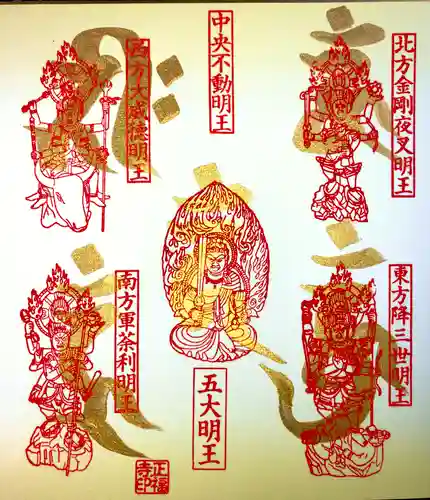 中央不動明王
北方金剛夜叉明王
西方大威徳明王
東方降三世明王
南方軍荼利明王
五大明王
正福
寺印